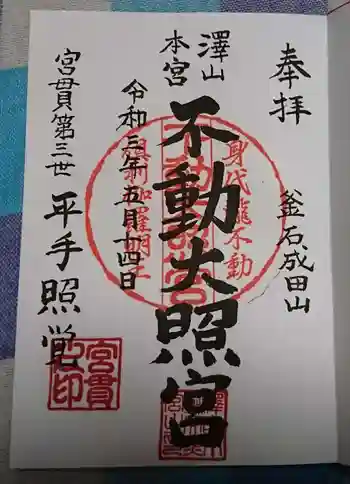 奉拝
釜石成田山
澤山
本宮
不動大照宮
身代龍不動
令和三年五月十四日
宮貫第三世 平手照覚
宮貫